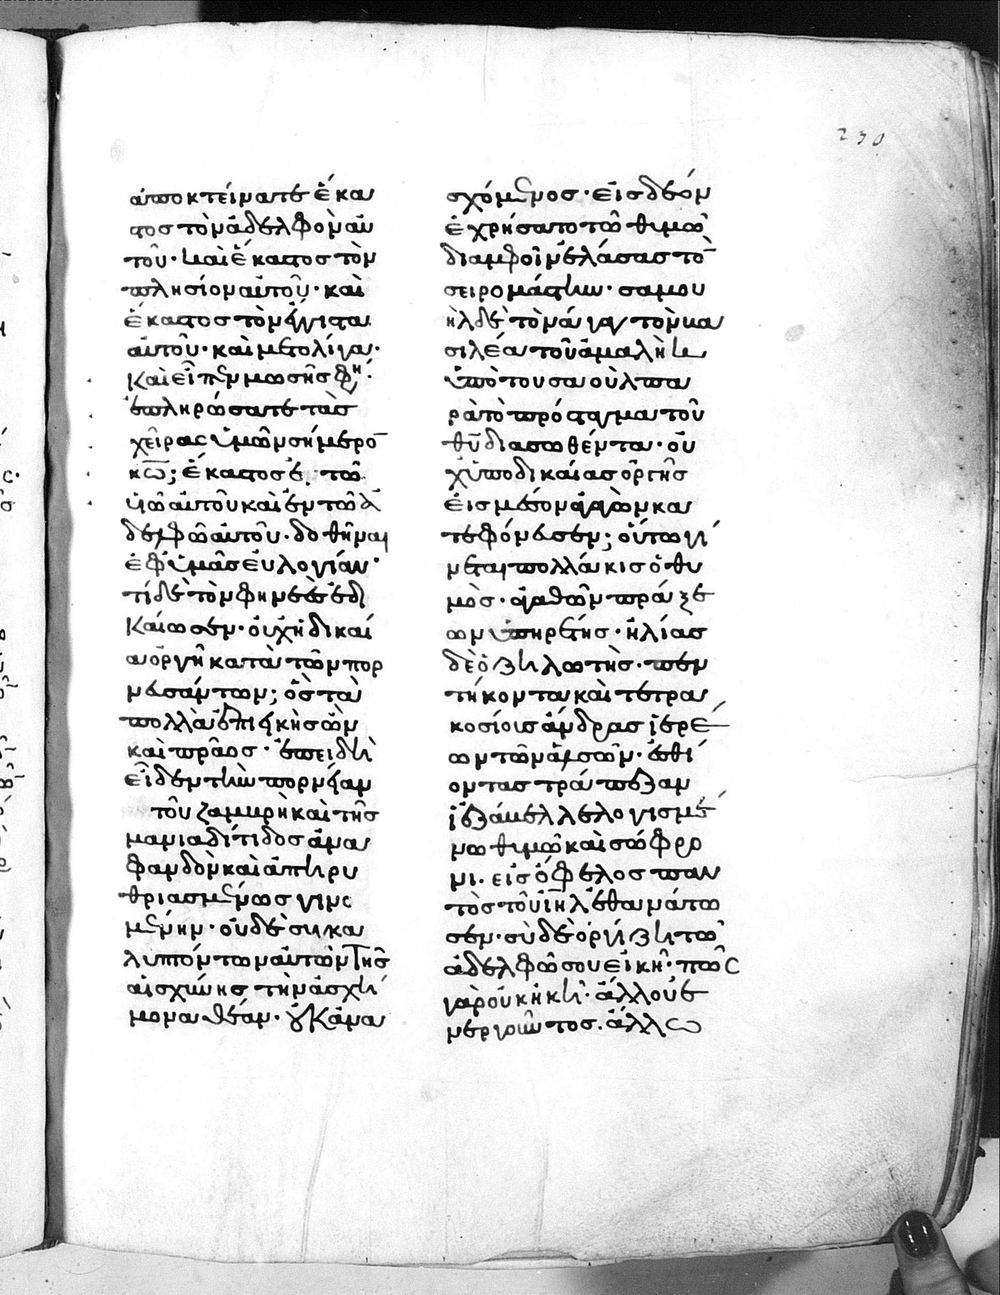 230
ἀποκτείνατε ἕκα
στος τὸν ἀδελφὸν αὐ
τοῦ· καὶ ἕκαστος τὸν
πλησίον αὐτοῦ· καὶ
ἕκαστος τὸν ἔγγιστα
αὐτοῦ· καὶ μετ ολίγα·
Καὶ εἶπεν μωσῆς φη·
ἐπληρώσατε τὰς
χεῖρας ὑμῶν σήμερο
κω; ἕκαστος ἐ τῶ
υἱῶ αὐτοῦ καὶ ἐν τῶ ἀ
δελφῶ αὐτοῦ· δοθῆναι
ἐφ ὑμᾶς ευλογίαν·
τί δὲ τὸν φηνεὲς ἐδι
Καίωσεν· οὐχ ἡ δικαί
α ὀργὴ κατὰ τῶν πορ
νευσάντων; ὃς τὰ
πολλὰ ἐπιεικὴς ὢν
καὶ πρᾶος· ἐπειδὴ
εἶδεν τὴν πορνείαν
τοῦ ζαμυρὴ καὶ τῆς
μαμιαδίτιδος ἀνα
φανδὸν καὶ ἀπηρυ
θριασμένως γινο
μένην· οὐδὲ συγκα
λυπτόντων αὐτῶν τῆς
αἰσχύνης τὴν ἀσχή
μονα θέαν· οὐκ ἀνα
σχόμενος· εἰς δεόν
ἐχρήσατο τῶ θυμῶ
διαμφοῖν ἐλάσας το
σειρομάστην· σαμου
ὴλ δὲ τὸν ἀγαγ τὸν βα
σιλέα τοῦ ἀμαλὴκ
ὑπὸ του σαοὺλ πα
ρὰ τὸ πρόσταγμα τοῦ
θῦ διασωθέντα· οὐ
χ ὑπο δικαίας ὀργῆς
εἰς μέσον ἀγαγὼν κα
τεφόνευσεν; οὕτω γί
νεται πολλάκις ὁ θυ
μὸς· ἀγαθῶν πράξε
ων ὑπηρέτης· ἡλίας
δὲ ὁ ζηλωτὴς· πεν
τήκοντα καὶ τετρα
κοσίους ἄνδρας ἱερέ
ων τῶν ἀλσῶν· ἐσθί
οντας τράπεζαν
ἰεζάβελ λελογισμέ
νω θυμῶ καὶ σώφρο
νι· εἰς ὄφελος παν
τὸς τοῦ ιηλ ἐθανάτω
σεν· σὺ δὲ ὀργίζη τῶ
ἀδελφῶ σου εἰκῆ· πῶς
γὰρ οὐκ ἠκῆ· ἄλλου ἐ
νεργοῦντος· ἄλλω